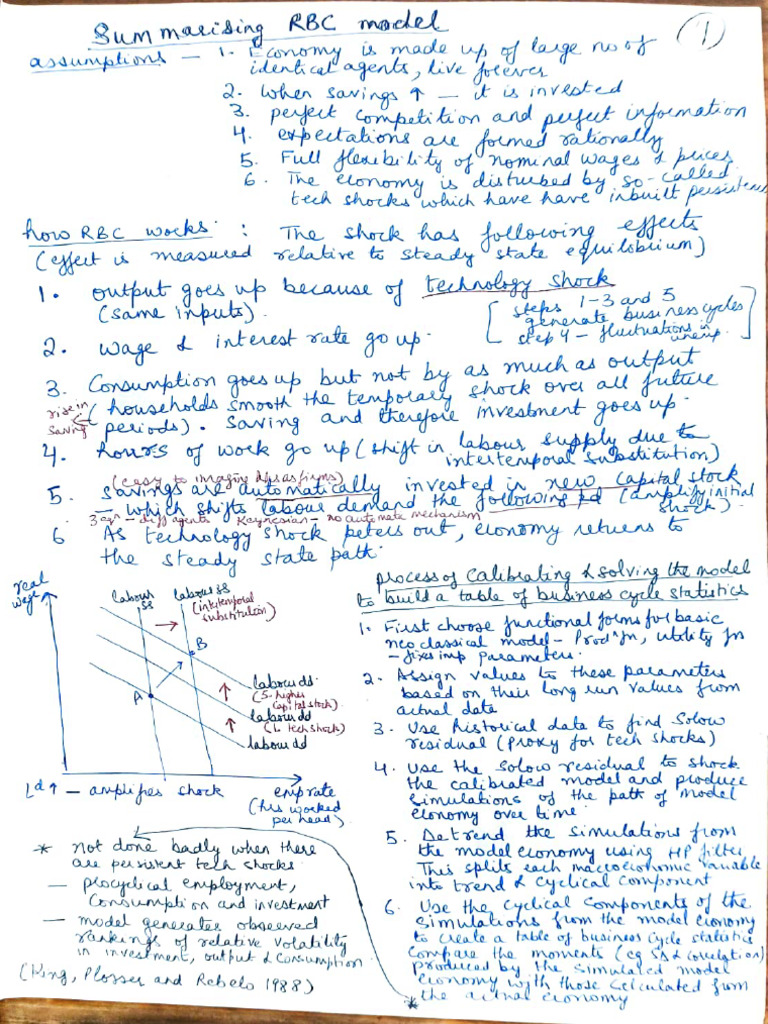 Summarising RBC model
1
assumptions — 1. Economy is made up of large no of
identical agents, live forever
2. when savings ↑ — it is invested
3. perfect competition and perfect information
4. expectations are formed rationally
5. Full flexibility of nominal wages & prices
6. The economy is disturbed by so-called
tech shocks which have have inbuilt persistence
how RBC works : The shock has following effects
(effect is measured relative to steady state equilibrium)
1. output goes up because of technology shock
(same inputs).
[steps 1-3 and 5
generate business cycles
step 4 – fluctuations in
unemp.]
2. wage & interest rate go up.
3. Consumption goes up but not by as much as output
(households smooth the temporary shock over all future
periods). Saving and therefore investment goes up.
rise in
saving
4. hours of work go up (shift in labour supply due to
intertemporal substitution)
(easy to imagine hhs as firms)
5. savings are automatically invested in new capital stock
– which shifts labour demand the following pd (amplify initial
shock).
– diff agents Keynesian – no automate mechanism
6 As technology shock peters out, economy returns to
the steady state path.
real
wage
labour
ss
labour ss
(intertemporal
substitution)
B
A
labour dd
(5. higher
capital stock)
labour dd
(1. tech shock)
labour dd
Ld ↑ – amplifies shock
emp rate
(hrs worked
per head)
* not done badly when there
are persistent tech shocks
— procyclical employment,
consumption and investment
— model generates observed
rankings of relative volatility
in investment, output & consumption
(King, Plosser and Rebelo 1988)
process of calibrating & solving the model
to build a table of business cycle statistics
1. First choose functional forms for basic
neoclassical model – Prod^n fn, utility fn
– fixes imp parameters.
2. Assign values to these parameters
based on their long run values from
actual data
3. Use historical data to find Solow
residual (proxy for tech shocks)
4. use the Solow residual to shock
the calibrated model and produce
simulations of the path of model
economy over time
5. Detrend the simulations from
the model economy using HP filter
This splits each macroeconomic variable
into trend & cyclical component
6. Use the cyclical components of the
simulations from the model economy
to create a table of business cycle statistics
Compare the moments (eg SD & correlation)
produced by the simulated model
economy with those calculated from
* the actual economy